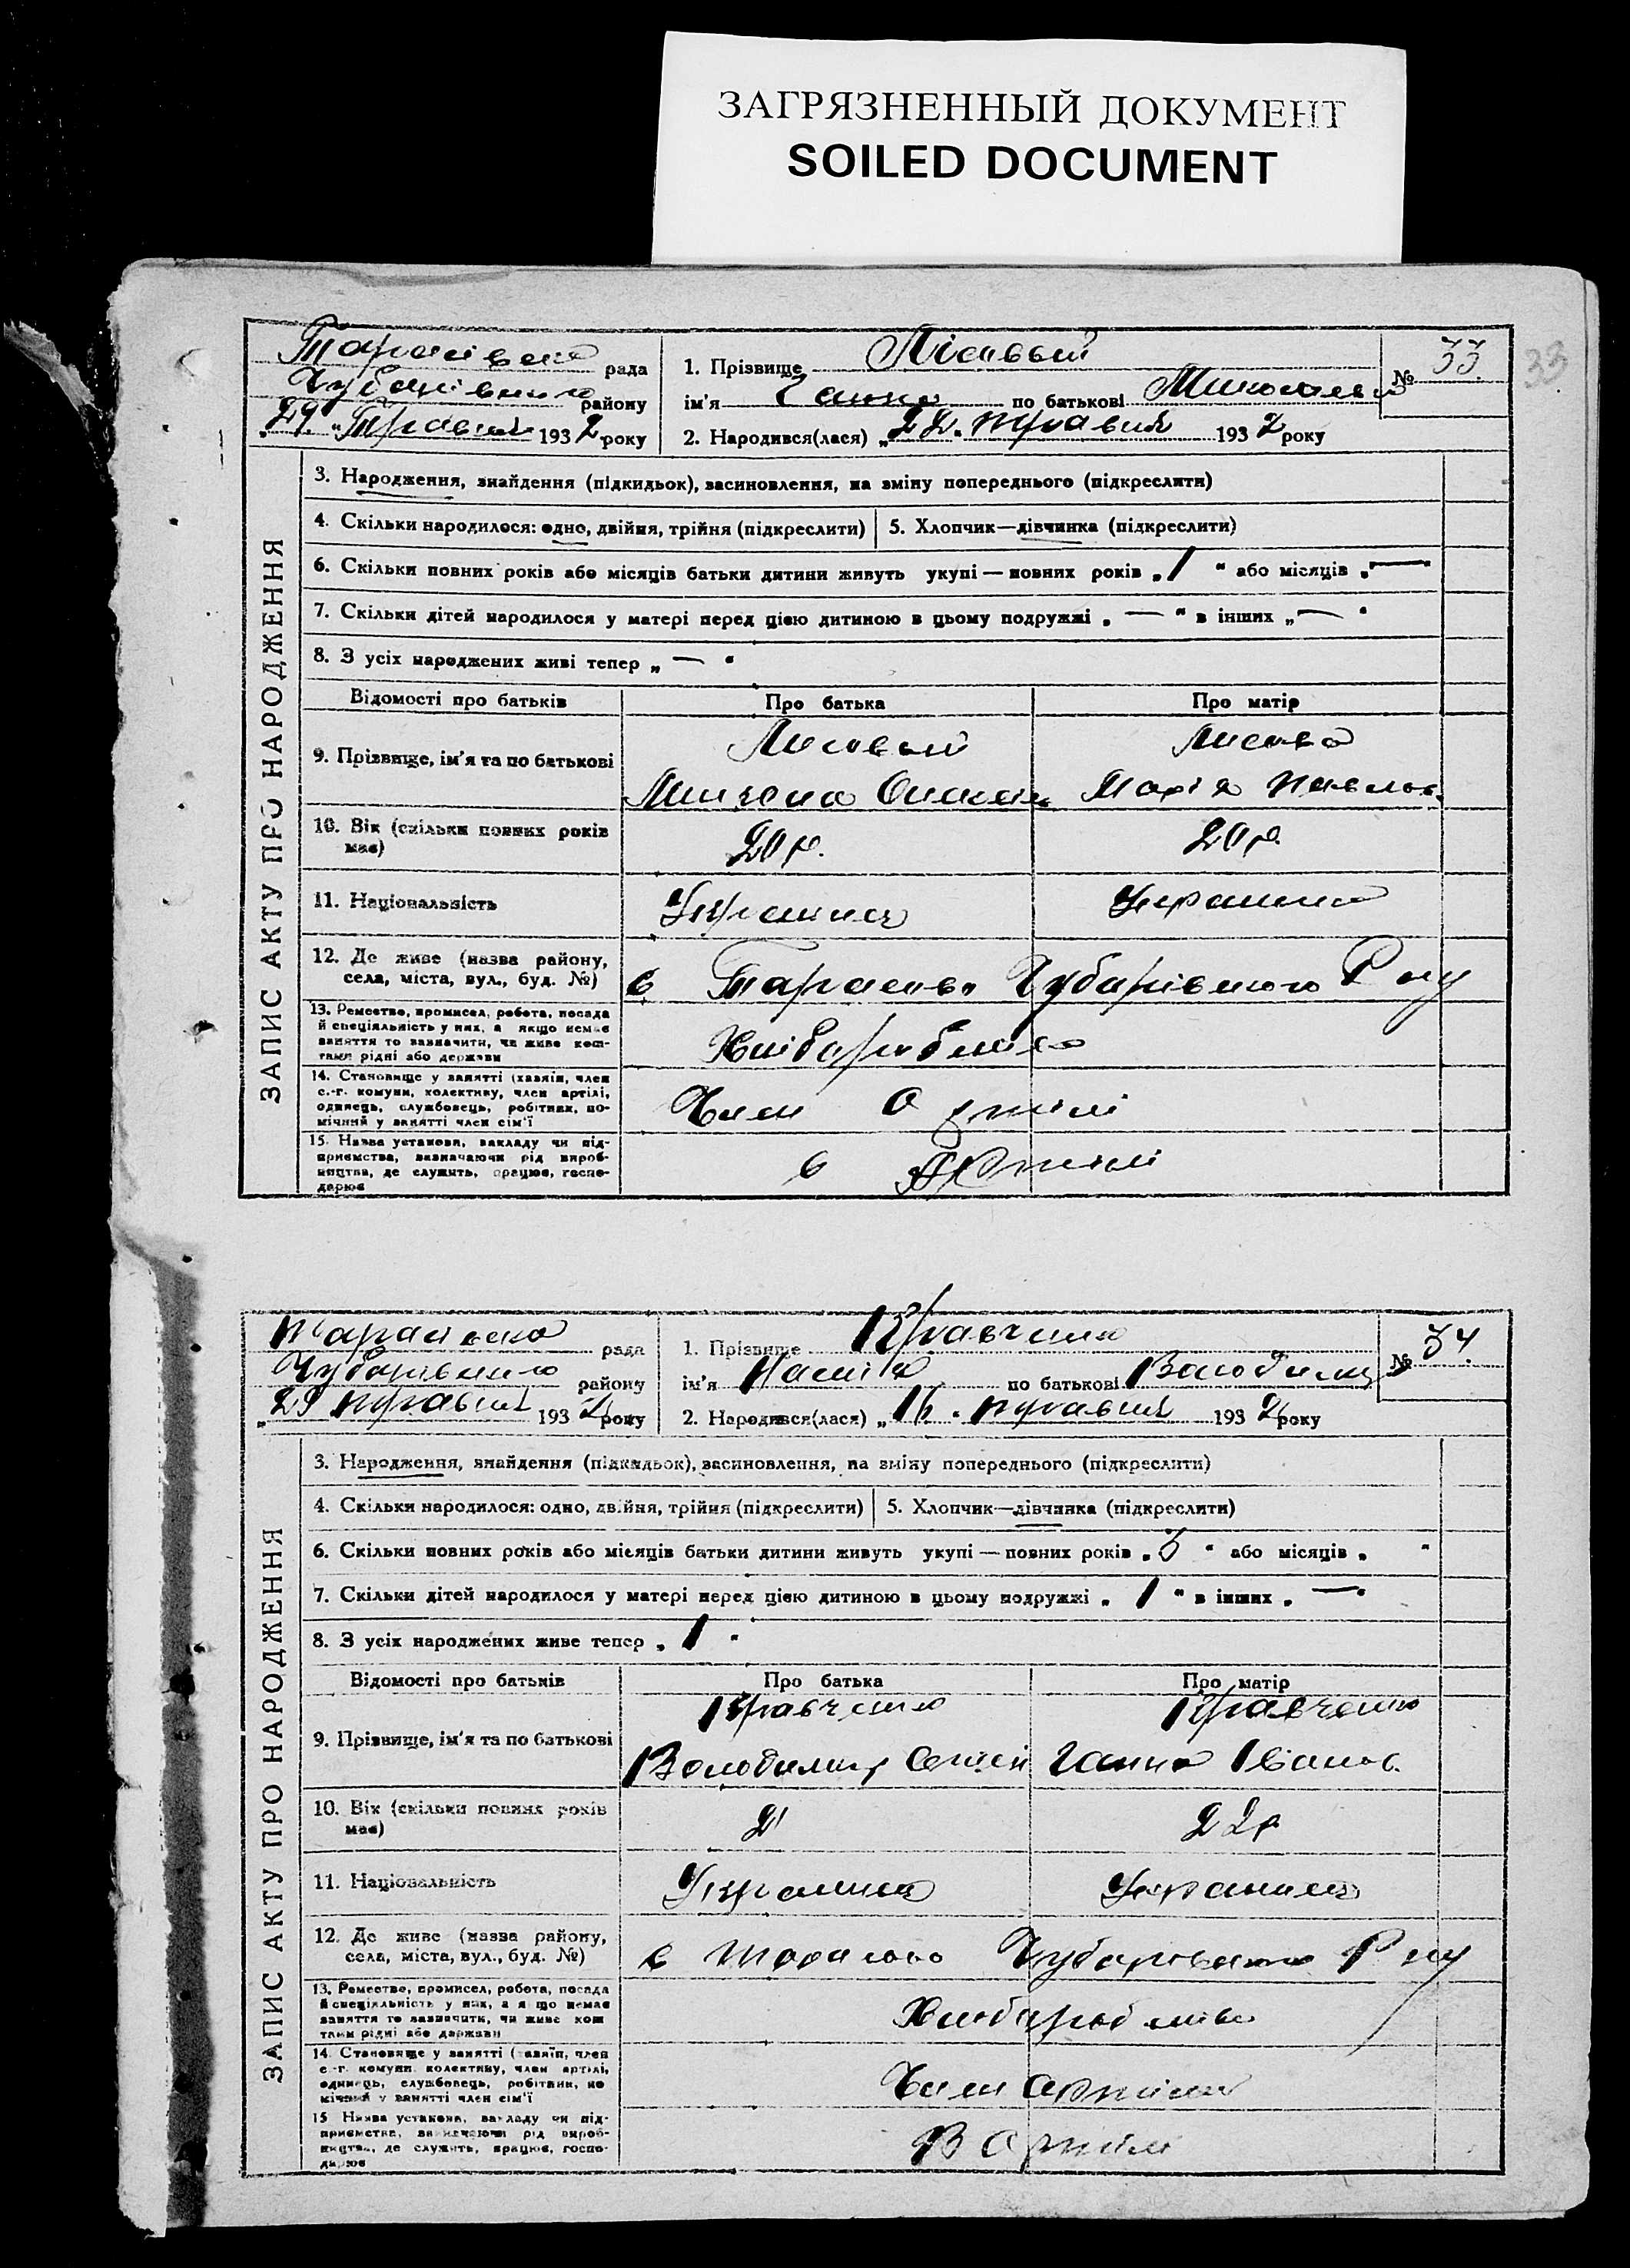 ЗАГРЯЗНЕННЫЙ ДОКУМЕНТ
SOILED DOCUMENT
33
ЗАПИС АКТУ ПРО НАРОДЖЕННЯ
рада
району
"29" Травня 1932 року
1. Прізвище Лісовый
ім'я Ганна по батькові
№ 33.
2. Народився(лася) "22" травня 1932 року
3. Народження, знайдення (підкидьок), засиновлення, на зміну попереднього (підкреслити)
4. Скільки народилося: одно, двійня, трійня (підкреслити) 5. Хлопчик—дівчинка (підкреслити)
6. Скільки повних років або місяців батьки дитини живуть укупі — повних років „1“ або місяців „—“
7. Скільки дітей народилося у матері перед цією дитиною в цьому подружжі „—“ в інших „—“
8. З усіх народжених живі тепер „—“
Відомості про батьків Про батька Про матір
9. Прізвище, ім'я та по батькові Лисовый Лисова
Микола Марія Павлов.
10. Вік (скільки повних років має) 20 р. 20 р.
11. Національність
12. Де живе (назва району, села, міста, вул., буд. №) в Чубарівского Р ну
13. Ремество, промисел, робота, посада й спеціяльність у них, а якщо немає заняття то зазначити, чи живе коштами рідні або держави
14. Становище у занятті (хазяїн, член с.-г. комуни, колективу, член артілі, одинець, службовець, робітник, помічний у занятті член сім'ї Член Артілі
15. Назва установи, закладу чи підприємства, зазначаючи рід виробництва, де служить, працює, господарює в Артілі
ЗАПИС АКТУ ПРО НАРОДЖЕННЯ
рада
району
"29 травня 1932 року
1. Прізвище Кравченко
ім'я по батькові
№ 34.
2. Народився(лася) травня 1932 року
3. Народження, знайдення (підкидьок), засиновлення, на зміну попереднього (підкреслити)
4. Скільки народилося: одно, двійня, трійня (підкреслити) 5. Хлопчик—дівчинка (підкреслити)
6. Скільки повних років або місяців батьки дитини живуть укупі — повних років або місяців
7. Скільки дітей народилося у матері перед цією дитиною в цьому подружжі „1“ в інших „—“
8. З усіх народжених живе тепер „1“
Відомості про батьків Про батька Про матір
9. Прізвище, ім'я та по батькові Кравченко Кравченко
Володимир Ганна Іванов.
10. Вік (скільки повних років має) 22 р
11. Національність
12. Де живе (назва району, села, міста, вул., буд. №) в Р ну
13. Ремество, промисел, робота, посада й спеціяльність у них, а якщо немає заняття то зазначити, чи живе коштами рідні або держави
14. Становище у занятті (хазяїн, член с.-г. комуни, колективу, член артілі, одинець, службовець, робітник, помічний у занятті член сім'ї Член
15. Назва установи, закладу чи підприємства, зазначаючи рід виробництва, де служить, працює, господарює В Артілі